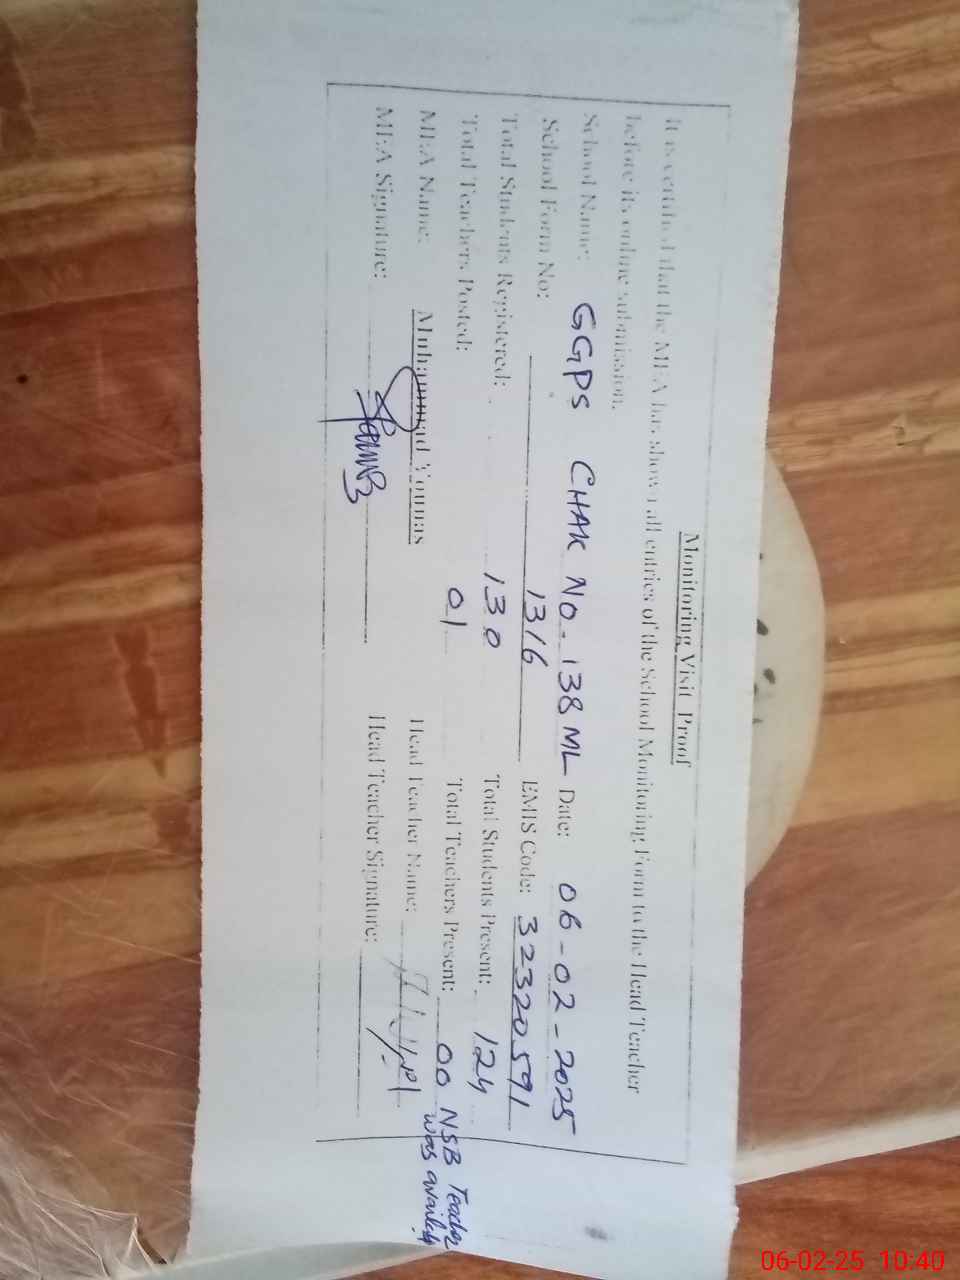 Monitoring Visit Proof
It is certified that the MEA has shown all entries of the School Monitoring Form to the Head Teacher
before its online submission.
School Name: GGPS CHAK NO. 138 ML Date: 06-02-2025
School Form No: 1316 EMIS Code: 32320591
Total Students Registered: 130 Total Students Present: 124
Total Teachers Posted: 01 Total Teachers Present: 00 NSB Teacher
was available
MEA Name: Muhammad Younas Head Teacher Name:
MEA Signature: Head Teacher Signature:
06-02-25 10:40